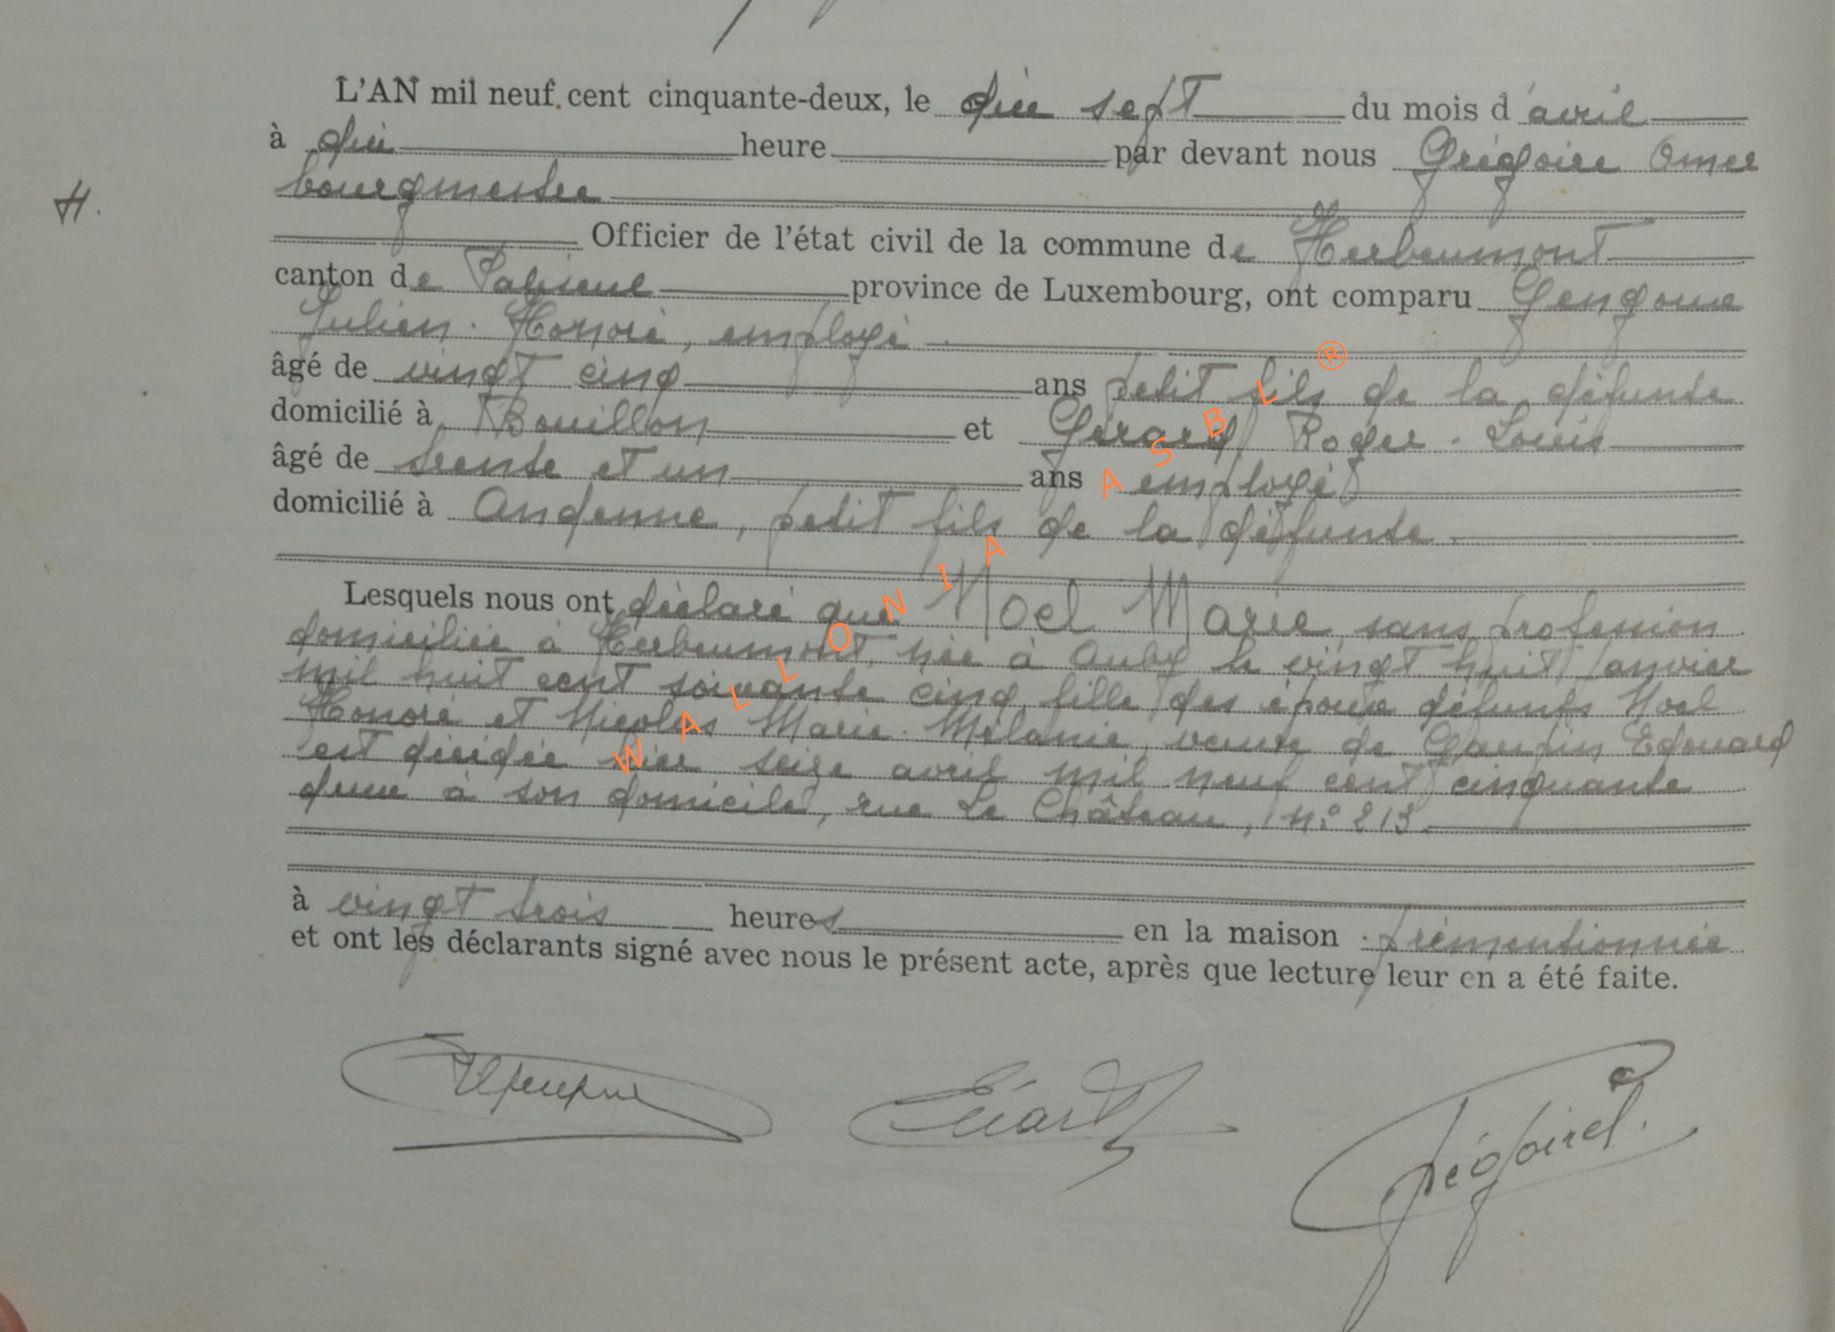 L'AN mil neuf cent cinquante-deux, le dix sept du mois d'avril
à dix heure par devant nous Grégoire Omer
bourgmestre
H.
Officier de l'état civil de la commune de Herbeumont
canton de Paliseul province de Luxembourg, ont comparu Gengoux
Julien - Honoré, employé
âgé de vingt cinq ans petit fils de la défunte
domicilié à Bouillon et Gérard Roger - Louis
âgé de trente et un ans employé
domicilié à Andenne, petit fils de la défunte.
Lesquels nous ont déclaré que Noel Marie sans profession
domiciliée à Herbeumont, née à Auby le vingt huit janvier
mil huit cent soixante cinq, fille des époux défunts Noel
Honoré et Nicolas Marie - Mélanie, veuve de Edouard
est décédée hier seize avril mil neuf cent cinquante
deux à son domicile, rue Le Château, n° 213
à vingt trois heures en la maison prémentionnée
et ont les déclarants signé avec nous le présent acte, après que lecture leur en a été faite.
Grégoire
WALLONIA ASBL ®